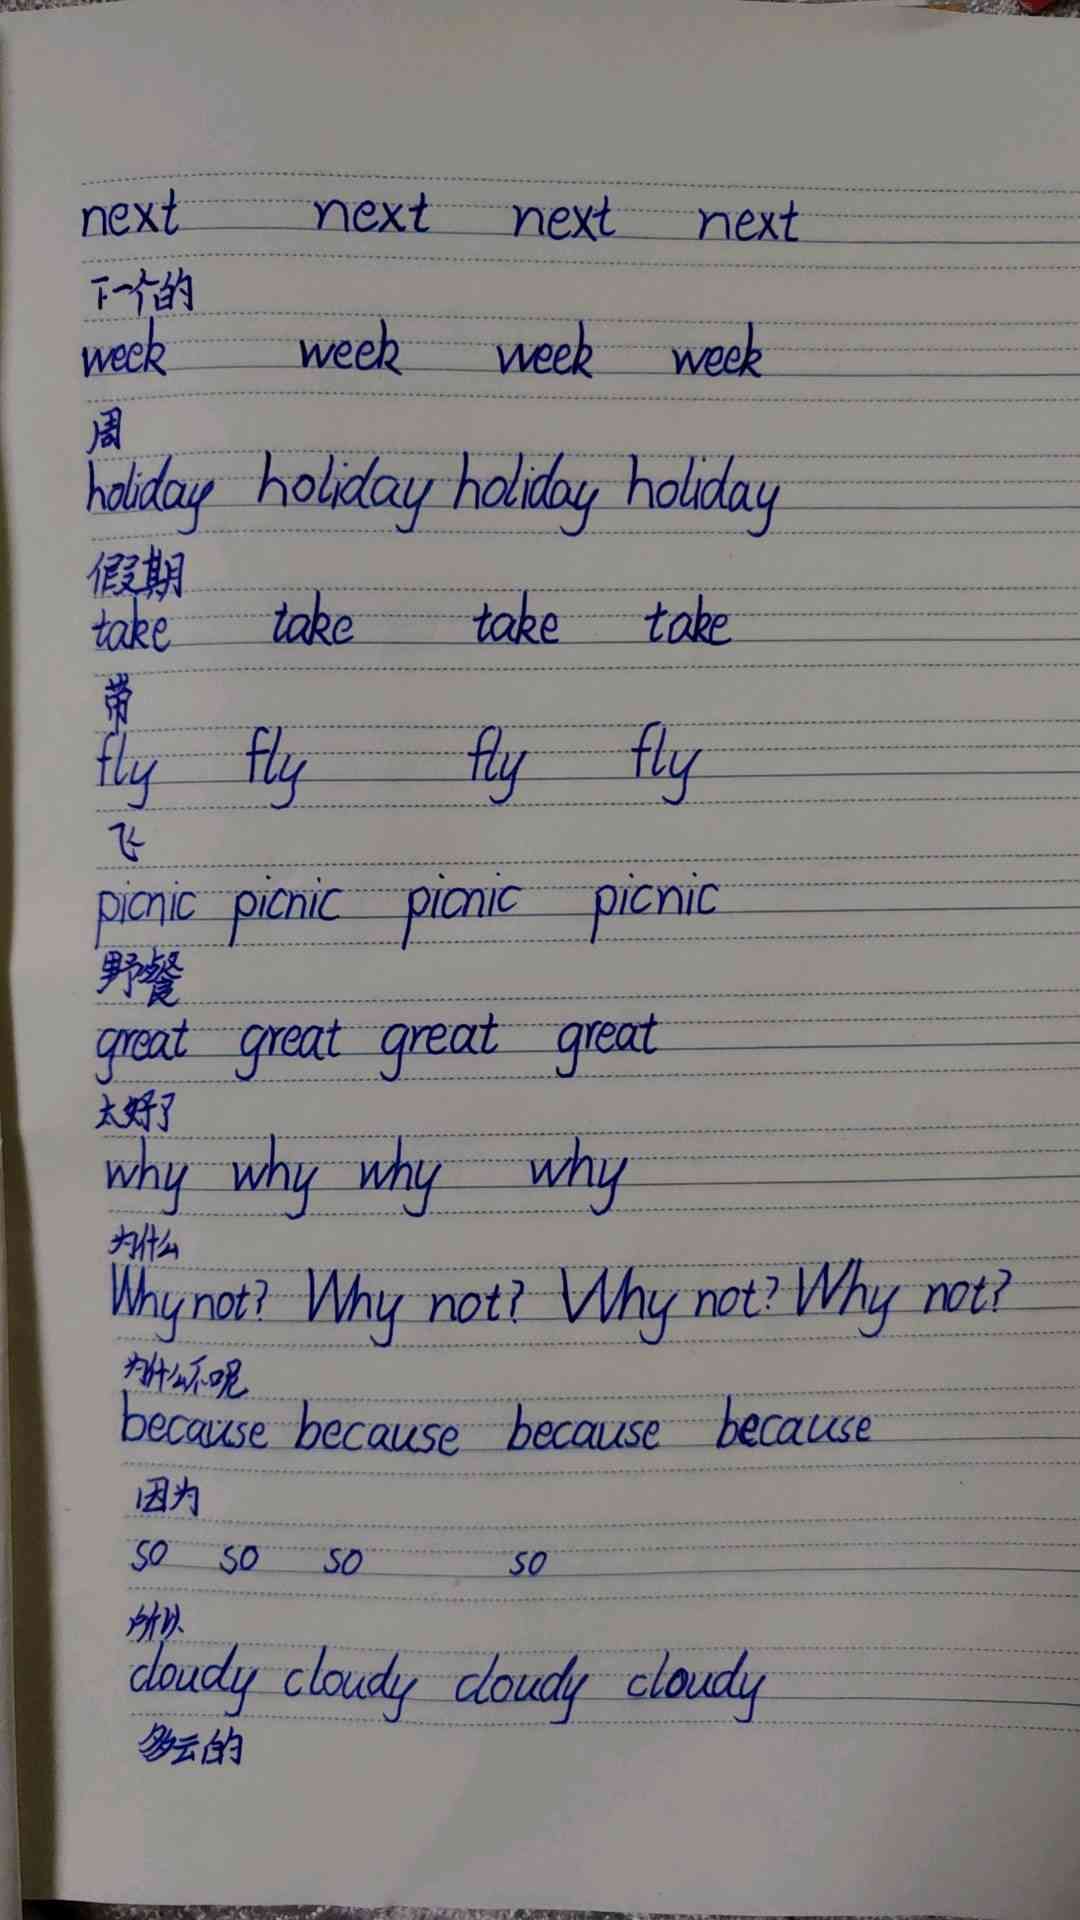 next next next next
下一个的
week week week week
周
holiday holiday holiday holiday
假期
take take take take
带
fly fly fly fly
飞
picnic picnic picnic picnic
野餐
great great great great
太好了
why why why why
为什么
Why not? Why not? Why not? Why not?
为什么不呢
because because because because
因为
so so so so
所以
cloudy cloudy cloudy cloudy
多云的